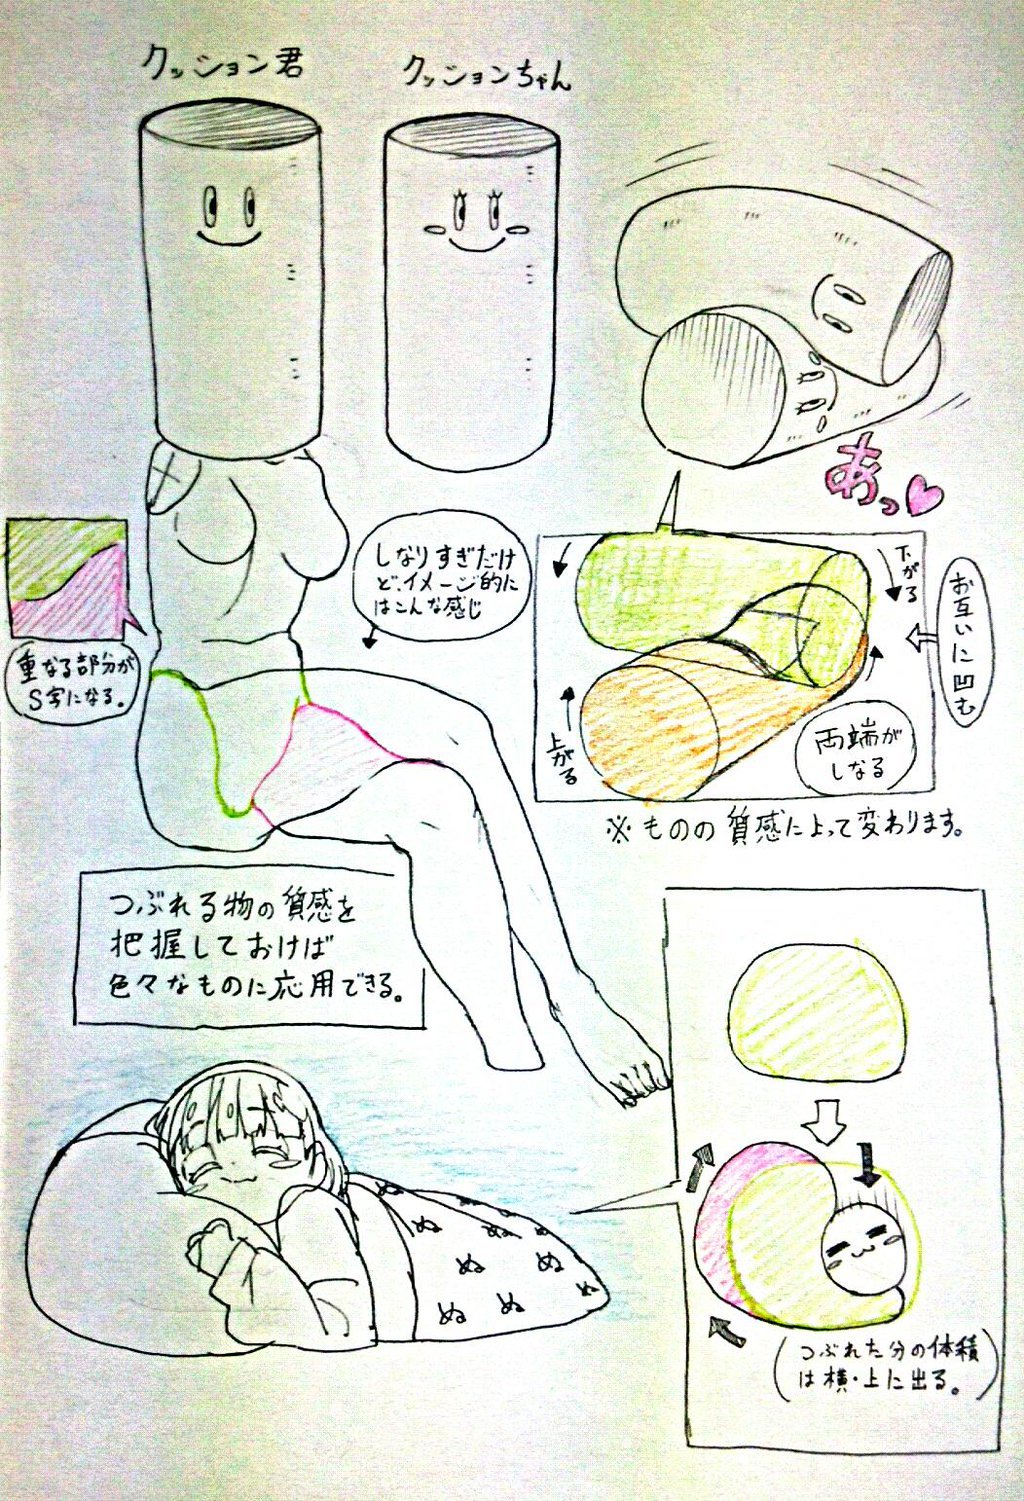 クッション君
クッションちゃん
あっ
しなりすぎだけ
ど、イメージ的に
はこんな感じ
重なる部分が
S字になる。
下がる
お互いに凹む
上がる
両端が
しなる
※ものの質感によって変わります。
つぶれる物の質感を
把握しておけば
色々なものに応用できる。
ぬ
ぬ
ぬ
ぬ
ぬ
ぬ
ぬ
ぬ
ぬ
つぶれた分の体積
は横・上に出る。